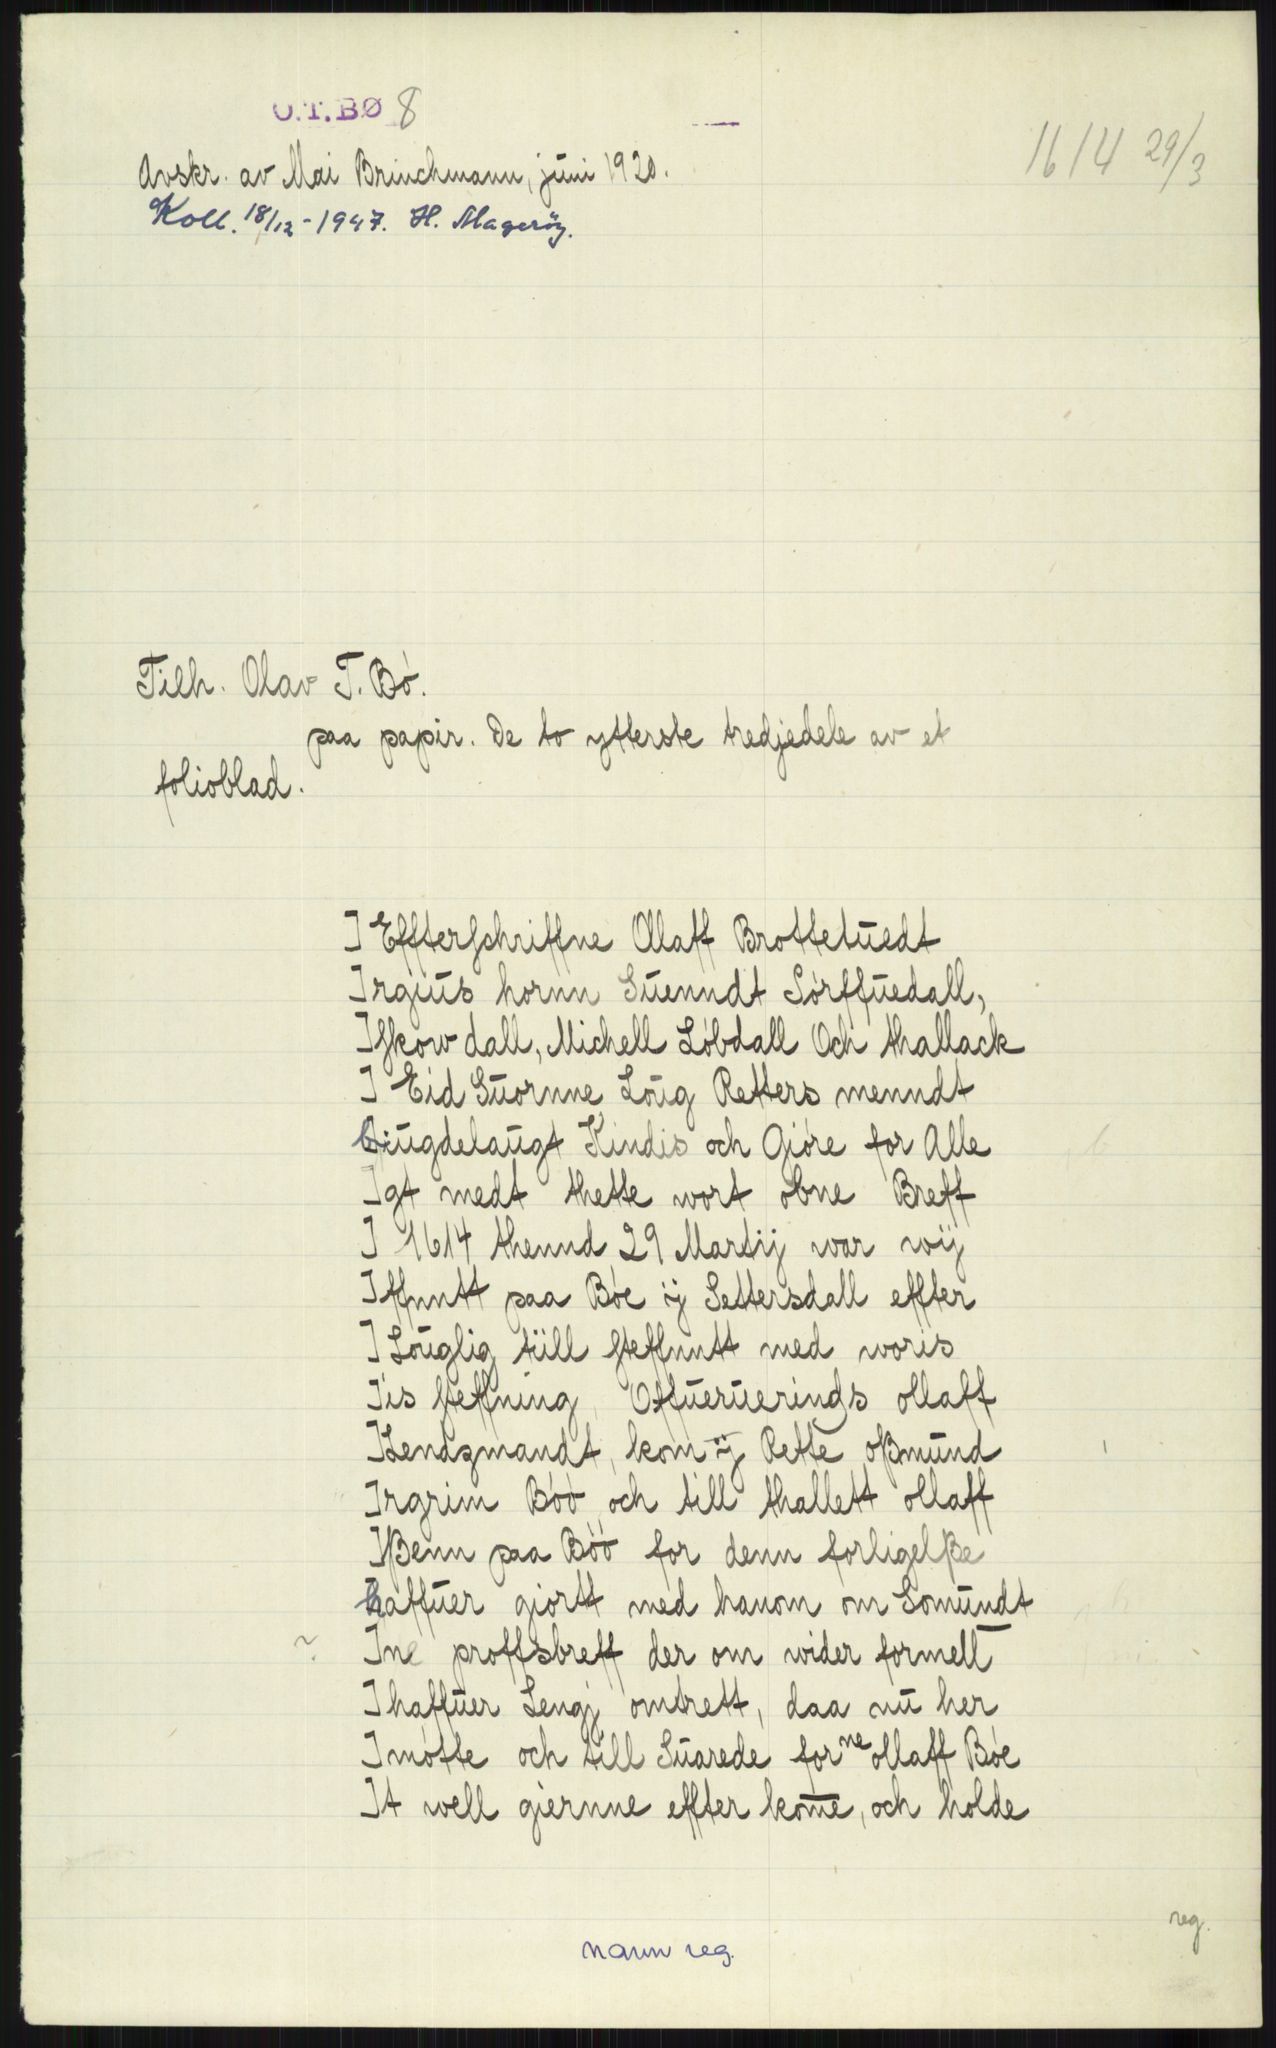 O.T.BØ 8
1614 29/3
Avskr. av Mai Brinchmann, juni 1920.
Koll. 18/12-1947. H. Magerøy.
Tilh. Olav T. Bø.
paa papir. De to ytterste tredjedele av et
folioblad.
] Effterschriffne Ollaff Brottetuedt
]rgius hornn Suenndt Sørffuedall,
]skow dall, Michell Løbdall Och thallack
] Eid Suornne Loug Retters menndt
biugdelaugt Kindis och Giøre for Alle
]gt medt thette wort obne Breff
] 1614 thennd 29 Martij war wij
]ffnntt paa Bøe ij Settersdall effter
] Louglig tiill steffnntt med woris
]is steffning, Offueruerinds ollaff
]Lendzmandt, kom ij Rette oßmund
]rgrim Bøø och till thallett ollaff
]ßenn paa Bøø for denn forligelße
haffuer giortt med hanom om Somundt
? ]ne proffsbreff der om wider formelt
] haffuer Lengj omtrett, daa nu her
] møtte och till Suarede forne ollaff Bøe
]t well giernne effter kome, och holde
reg.
navn reg.